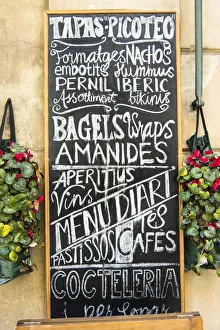 TAPAS·PICOTEO
Formatges NACHOS
embotits Hummus
PERNIL IBERIC
Assortiment bikinis
BAGELS Wraps
AMANIDES
APERITIUS
Vins
MENU DIARI
Tés
PASTISSOS CAFES
COCTELERIA